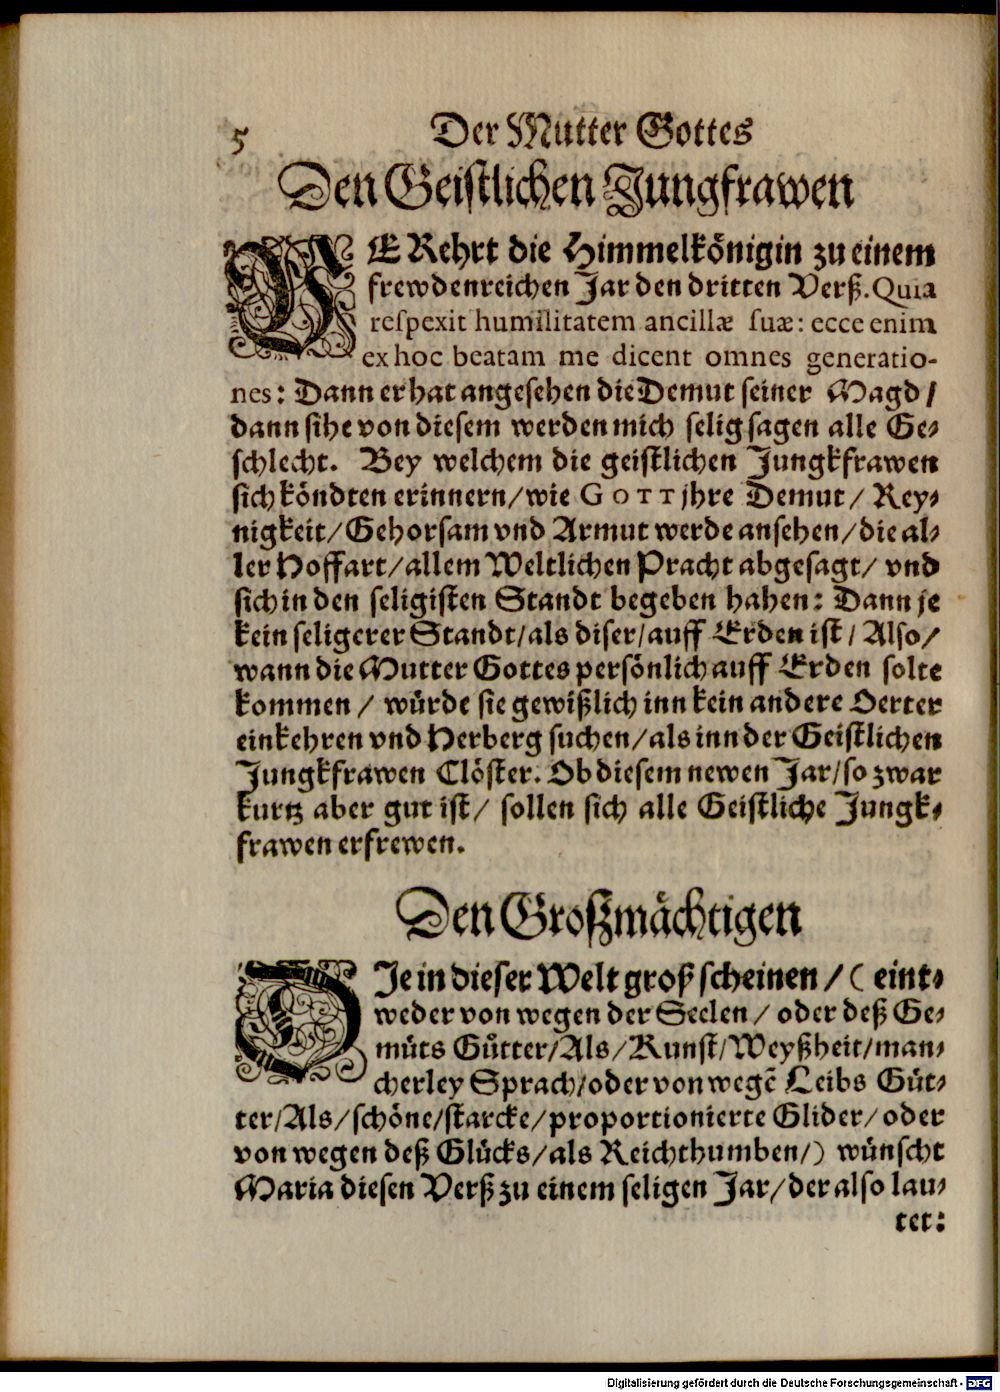 5
Der Mutter Gottes
Den Geistlichen Jungfrawen
VERehrt die Himmelkönigin zu einem
frewdenreichen Jar den dritten Verß. Quia
respexit humilitatem ancillæ suæ: ecce enim
ex hoc beatam me dicent omnes generatio-
nes: Dann er hat angesehen die Demut seiner Magd/
dann sihe von diesem werden mich selig sagen alle Ge-
schlecht. Bey welchem die geistlichen Jungkfrawen
sich köndten erinnern/wie GOTT jhre Demut/ Rey-
nigkeit/Gehorsam vnd Armut werde ansehen/die al-
ler Hoffart/allem Weltlichen Pracht abgesagt/ vnd
sich in den seligisten Standt begeben hahen: Dann je
kein seligerer Standt/als diser/auff Erden ist/ Also/
wann die Mutter Gottes persönlich auff Erden solte
kommen/ würde sie gewißlich inn kein andere Oerter
einkehren vnd Herberg suchen/als inn der Geistlichen
Jungkfrawen Clöster. Ob diesem newen Jar/so zwar
kurtz aber gut ist/ sollen sich alle Geistliche Jungk-
frawen erfrewen.
Den Großmächtigen
DJe in dieser Welt groß scheinen/( eint-
weder von wegen der Seelen/ oder deß Ge-
müts Gütter/Als/Kunst/Weyßheit/man-
cherley Sprach/oder von wegẽ Leibs Güt-
ter/Als/schöne/starcke/proportionierte Glider/oder
von wegen deß Glücks/als Reichthumben/) wünscht
Maria diesen Verß zu einem seligen Jar/der also lau-
tet:
Digitalisierung gefördert durch die Deutsche Forschungsgemeinschaft - DFG